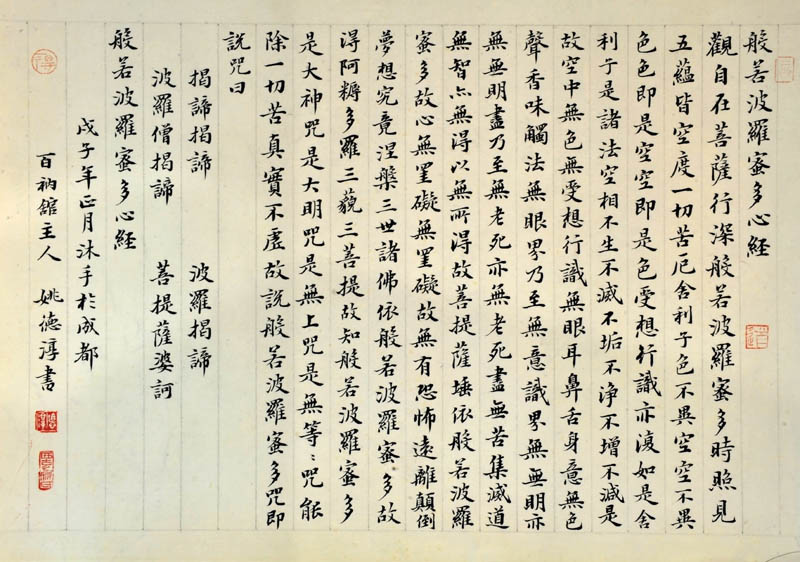 般若波羅蜜多心経
觀自在菩薩行深般若波羅蜜多時照見
五蘊皆空度一切苦厄舍利子色不異空空不異
色色即是空空即是色受想行識亦復如是舍
利子是諸法空相不生不滅不垢不淨不增不減是
故空中無色無受想行識無眼耳鼻舌身意無色
聲香味觸法無眼界乃至無意識界無無明亦
無無明盡乃至無老死亦無老死盡無苦集滅道
無智亦無得以無所得故菩提薩埵依般若波羅
蜜多故心無罣礙無罣礙故無有恐怖遠離顛倒
夢想究竟涅槃三世諸佛依般若波羅蜜多故
得阿耨多羅三藐三菩提故知般若波羅蜜多
是大神咒是大明咒是無上咒是無等〻咒能
除一切苦真實不虛故説般若波羅蜜多咒即
説咒曰
揭諦揭諦 波羅揭諦
波羅僧揭諦 菩提薩婆訶
般若波羅蜜多心経
戊子年正月沐手於成都
百衲舘主人 姚德淳書